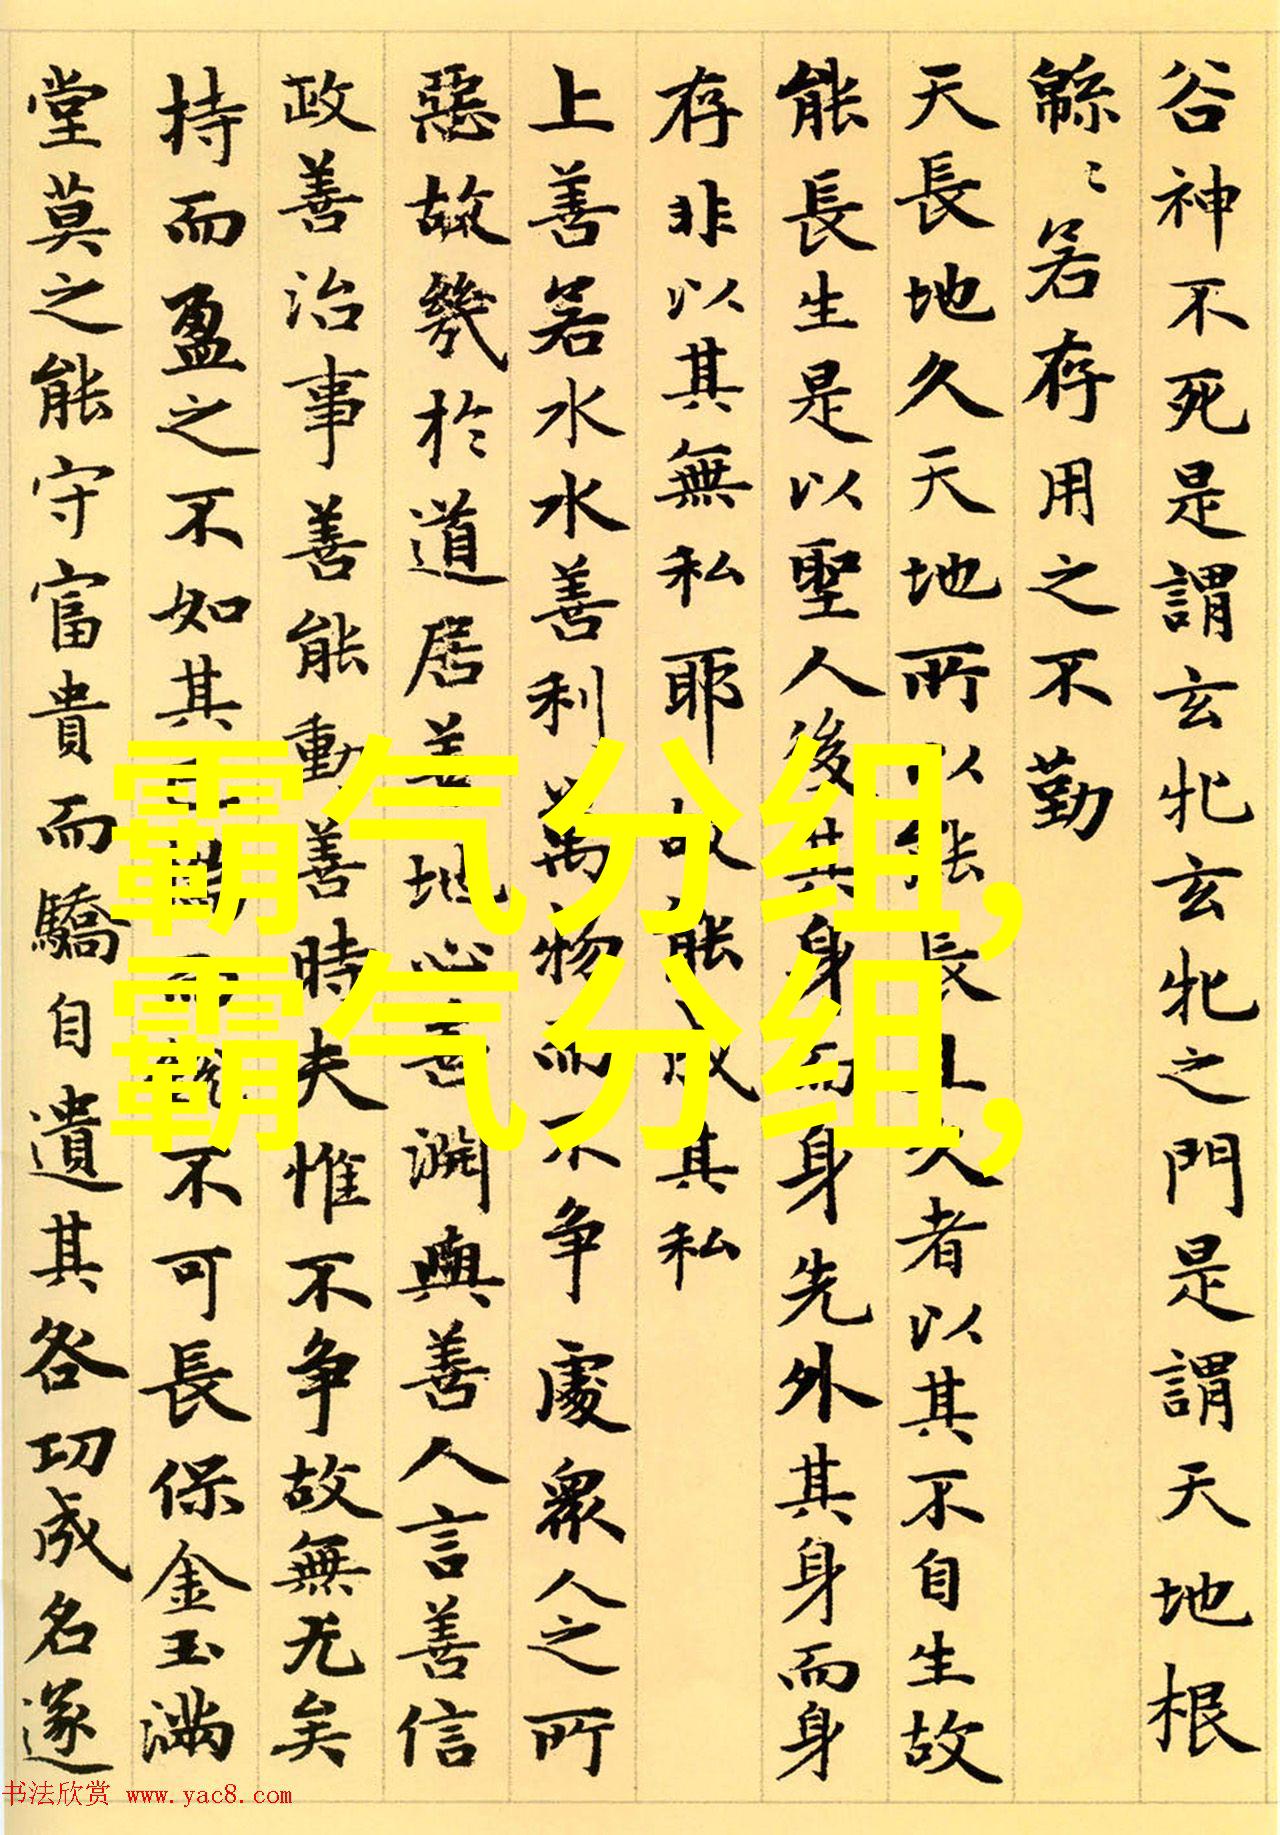 谷神不死是謂玄牝玄牝之門是謂天地根
緜〻若存用之不勤
天長地久天地所以能長且久者以其不自生故
能長生是以聖人後其身而身先外其身而身
存非以其無私耶故能成其私
上善若水水善利萬物而不争處衆人之所
惡故幾於道居善地心善渊與善人言善信
政善治事善能動善時夫惟不争故無尤矣
持而盈之不如其而不可長保金玉滿
堂莫之能守富貴而驕自遺其咎功成名遂
霸气分组,
霸气分组,
书法欣赏 www.yac8.com